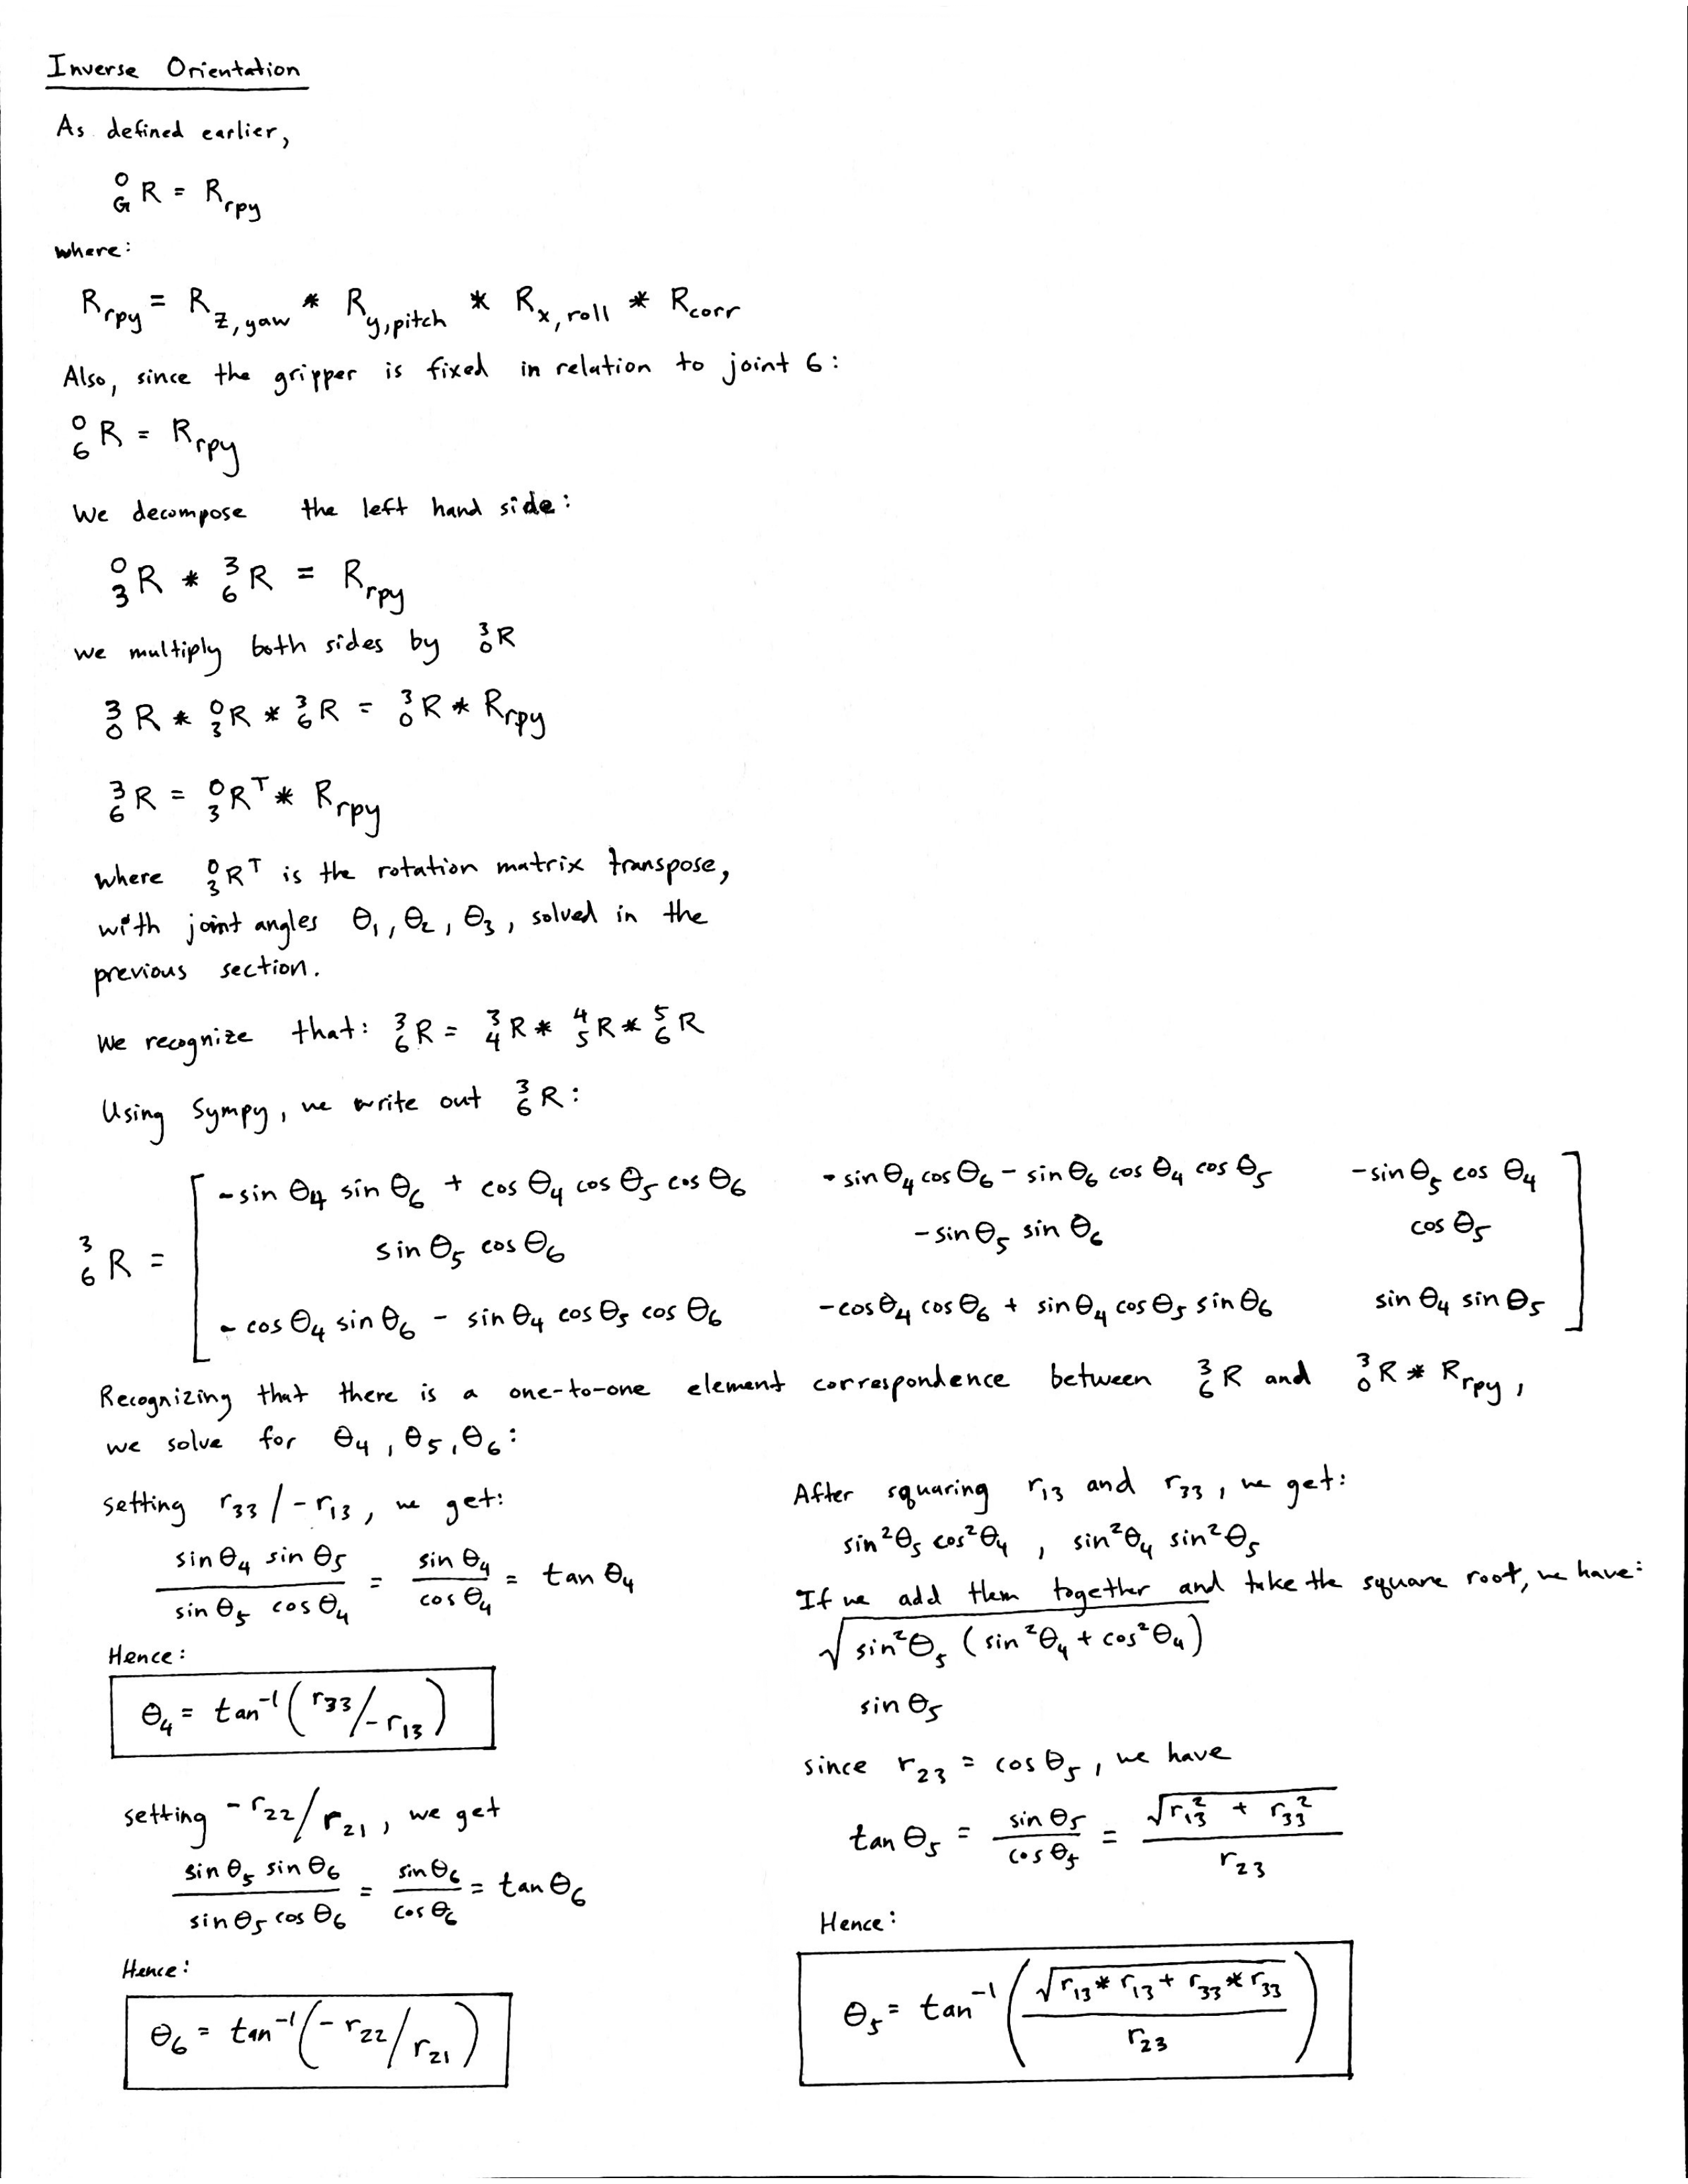 Inverse Orientation
As defined earlier,
⁰_G R = R_rpy
where:
R_rpy = R_z,yaw * R_y,pitch * R_x,roll * R_corr
Also, since the gripper is fixed in relation to joint 6:
⁰₆R = R_rpy
We decompose the left hand side:
⁰₃R * ³₆R = R_rpy
we multiply both sides by ³₀R
³₀R * ⁰₃R * ³₆R = ³₀R * R_rpy
³₆R = ⁰₃Rᵀ * R_rpy
where ⁰₃Rᵀ is the rotation matrix transpose,
with joint angles θ₁, θ₂, θ₃, solved in the
previous section.
We recognize that: ³₆R = ³₄R * ⁴₅R * ⁵₆R
Using Sympy, we write out ³₆R:
-sin θ₄ sin θ₆ + cos θ₄ cos θ₅ cos θ₆ -sin θ₄ cos θ₆ - sin θ₆ cos θ₄ cos θ₅ -sin θ₅ cos θ₄
³₆R = [ sin θ₅ cos θ₆ -sin θ₅ sin θ₆ cos θ₅ ]
-cos θ₄ sin θ₆ - sin θ₄ cos θ₅ cos θ₆ -cos θ₄ cos θ₆ + sin θ₄ cos θ₅ sin θ₆ sin θ₄ sin θ₅
Recognizing that there is a one-to-one element correspondence between ³₆R and ³₀R * R_rpy,
we solve for θ₄, θ₅, θ₆:
setting r₃₃ / -r₁₃, we get:
sin θ₄ sin θ₅ / sin θ₅ cos θ₄ = sin θ₄ / cos θ₄ = tan θ₄
Hence:
θ₄ = tan⁻¹(r₃₃/-r₁₃)
setting -r₂₂/r₂₁, we get
sin θ₅ sin θ₆ / sin θ₅ cos θ₆ = sin θ₆ / cos θ₆ = tan θ₆
Hence:
θ₆ = tan⁻¹(-r₂₂/r₂₁)
After squaring r₁₃ and r₃₃, we get:
sin²θ₅ cos²θ₄ , sin²θ₄ sin²θ₅
If we add them together and take the square root, we have:
√(sin²θ₅ (sin²θ₄ + cos²θ₄))
sin θ₅
since r₂₃ = cos θ₅, we have
tan θ₅ = sin θ₅ / cos θ₅ = √(r₁₃² + r₃₃²) / r₂₃
Hence:
θ₅ = tan⁻¹(√(r₁₃ * r₁₃ + r₃₃ * r₃₃) / r₂₃)